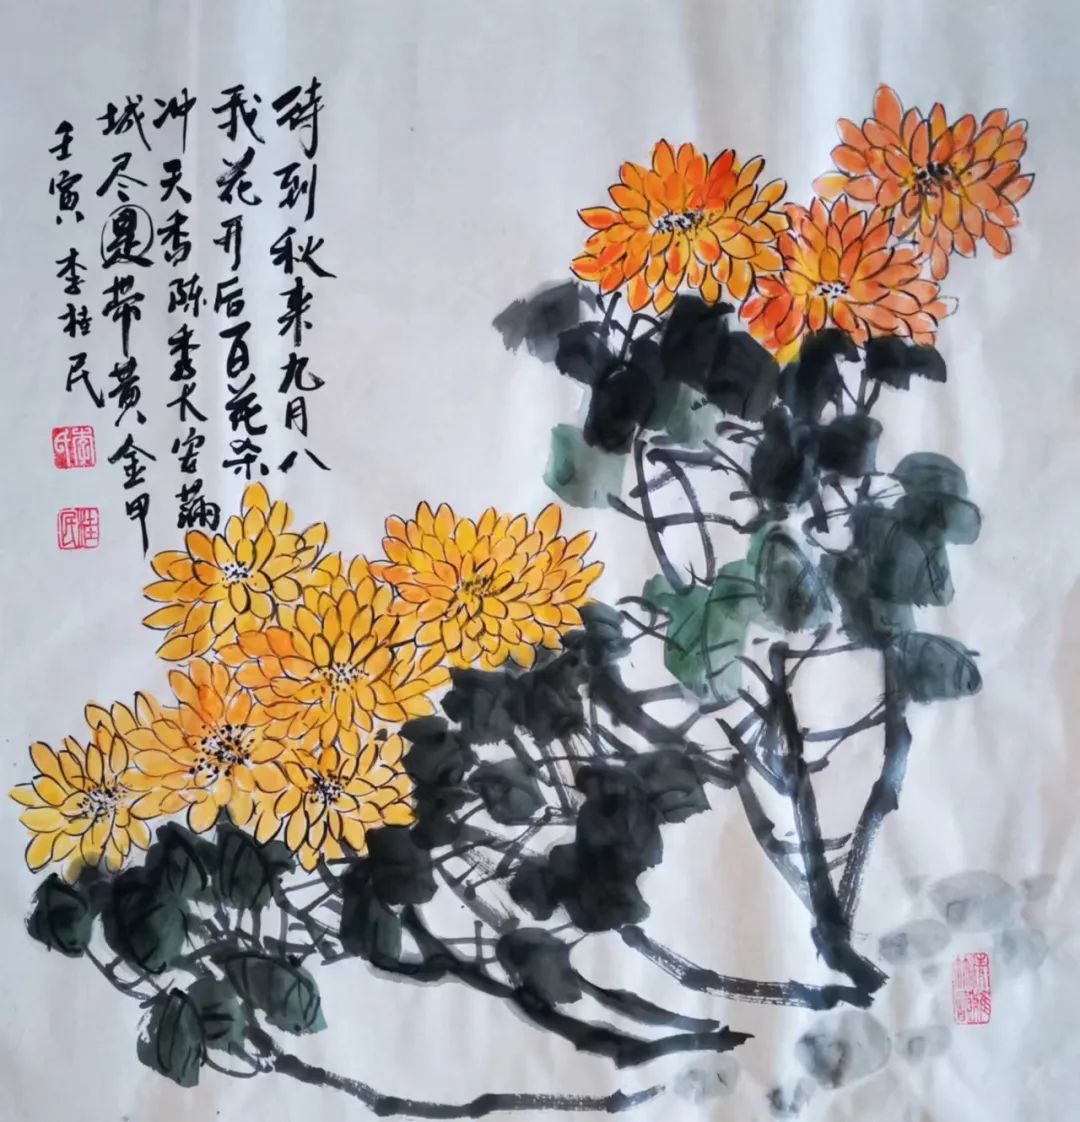 待到秋来九月八
我花开后百花杀
冲天香阵透长安满
城尽是带黄金甲
壬寅 李桂民
桂民